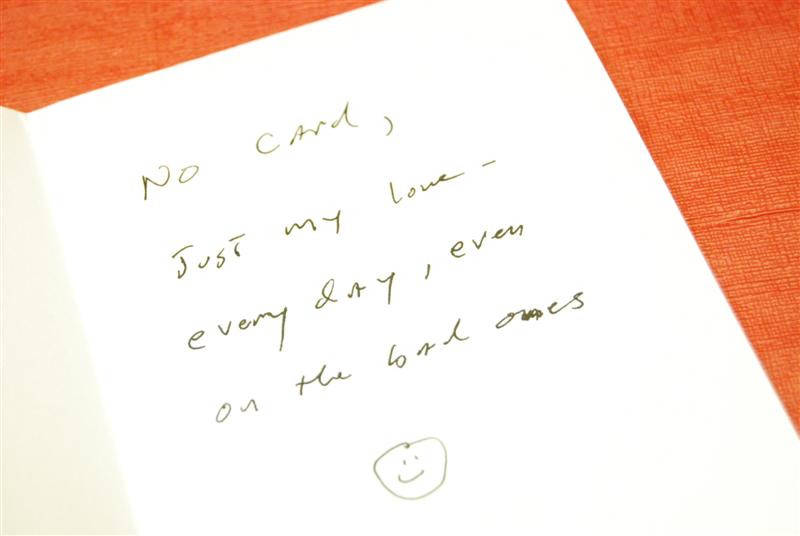 No card,
Just my love -
every day, even
on the bad ones